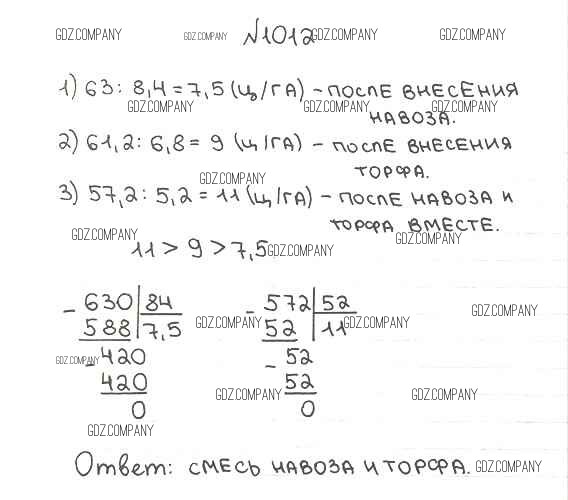 GDZ.COMPANY GDZ.COMPANY №1012 GDZ.COMPANY GDZ.COMPANY
1) 63 : 8,4 = 7,5 (ц/га) – после внесения
GDZ.COMPANY GDZ.COMPANY GDZ.COMPANY
навоза.
2) 61,2 : 6,8 = 9 (ц/га) – после внесения
GDZ.COMPANY торфа.
3) 57,2 : 5,2 = 11 (ц/га) – после навоза и
торфа вместе.
GDZ.COMPANY GDZ.COMPANY
11 > 9 > 7,5 GDZ.COMPANY
– 630 | 84 – 572 | 52 GDZ.COMPANY
588 | 7,5 GDZ.COMPANY 52 | 11 GDZ.COMPANY
GDZ.COMPANY – 420 – 52
420 52 GDZ.COMPANY GDZ.COMPANY
0 0
GDZ.COMPANY
Ответ: смесь навоза и торфа. GDZ.COMPANY